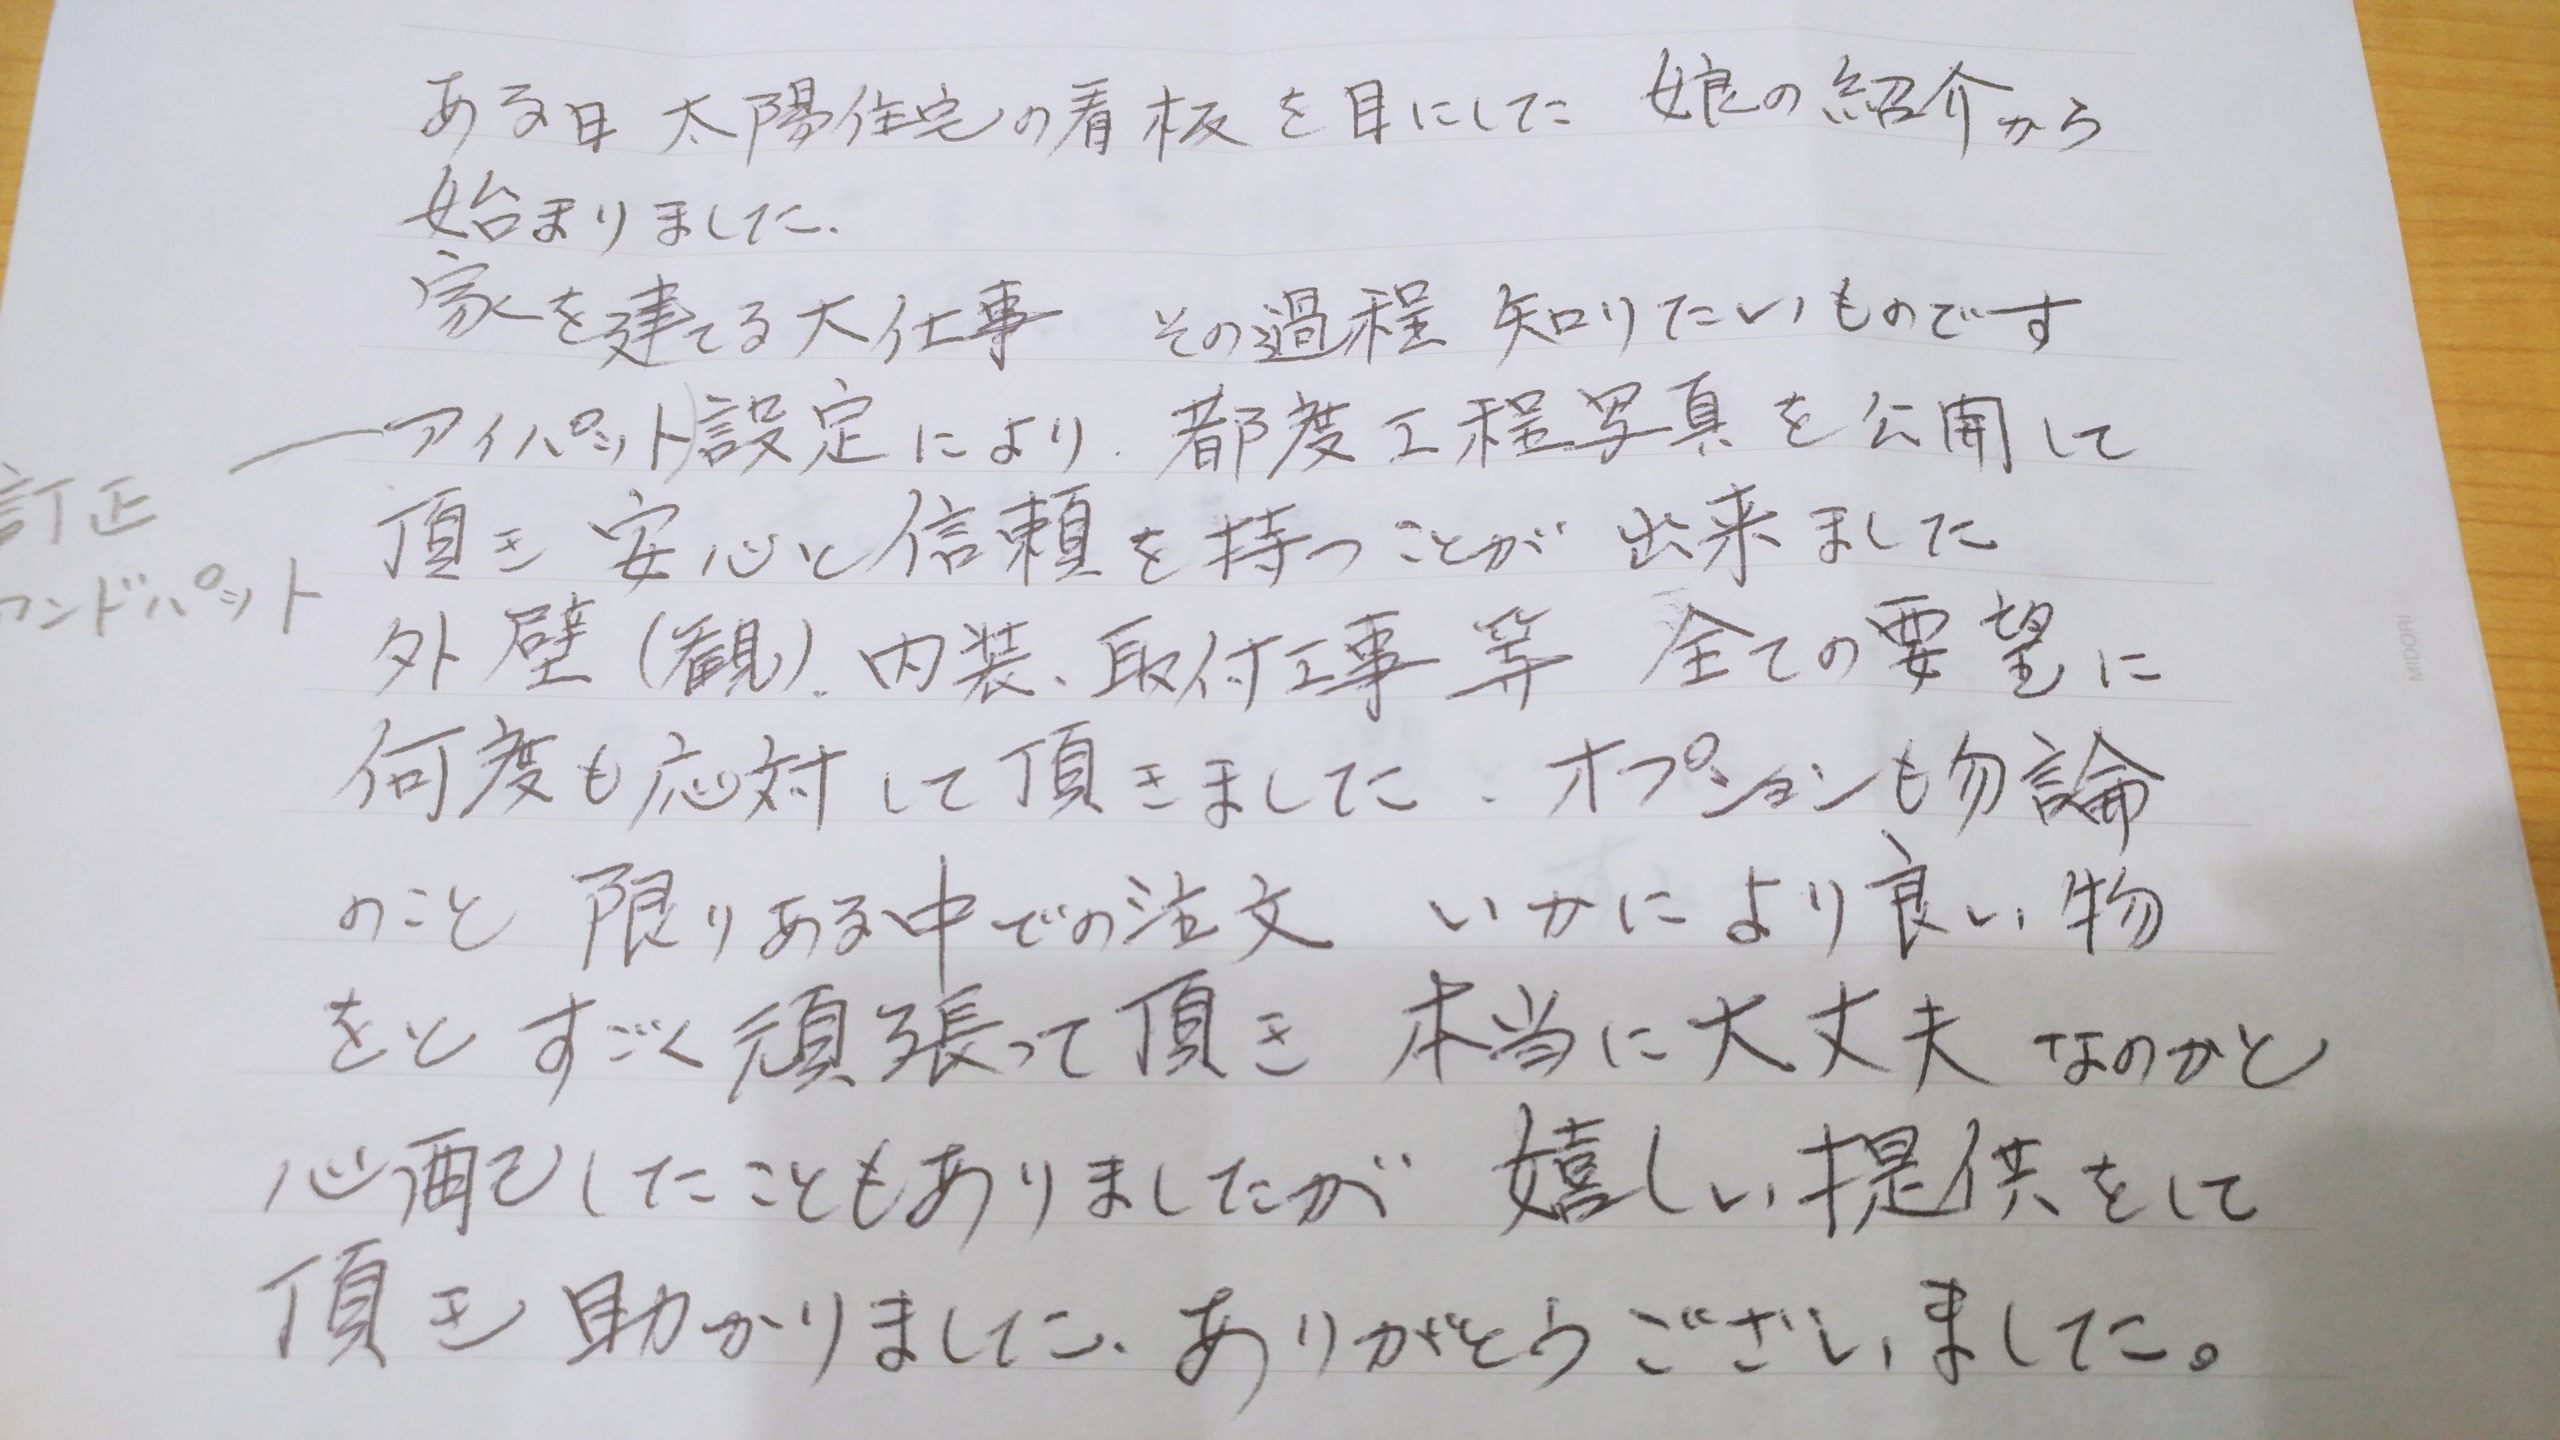 ある日 太陽住宅の看板を目にした 娘の紹介から
始まりました.
家を建てる大仕事 その過程 知りたいものです
アイパット)設定により. 都度工程写真を公開して
訂正
頂き 安心と信頼を持つことが 出来ました
ンドパット
外壁(観). 内装、取付工事等 全ての要望に
何度も応対して頂きました. オプションも勿論
のこと 限りある中での注文 いかにより良い物
をと すごく頑張って頂き 本当に大丈夫なのかと
心配したこともありましたが 嬉しい提供をして
頂き 助かりました. ありがとうございました。
MIDORI